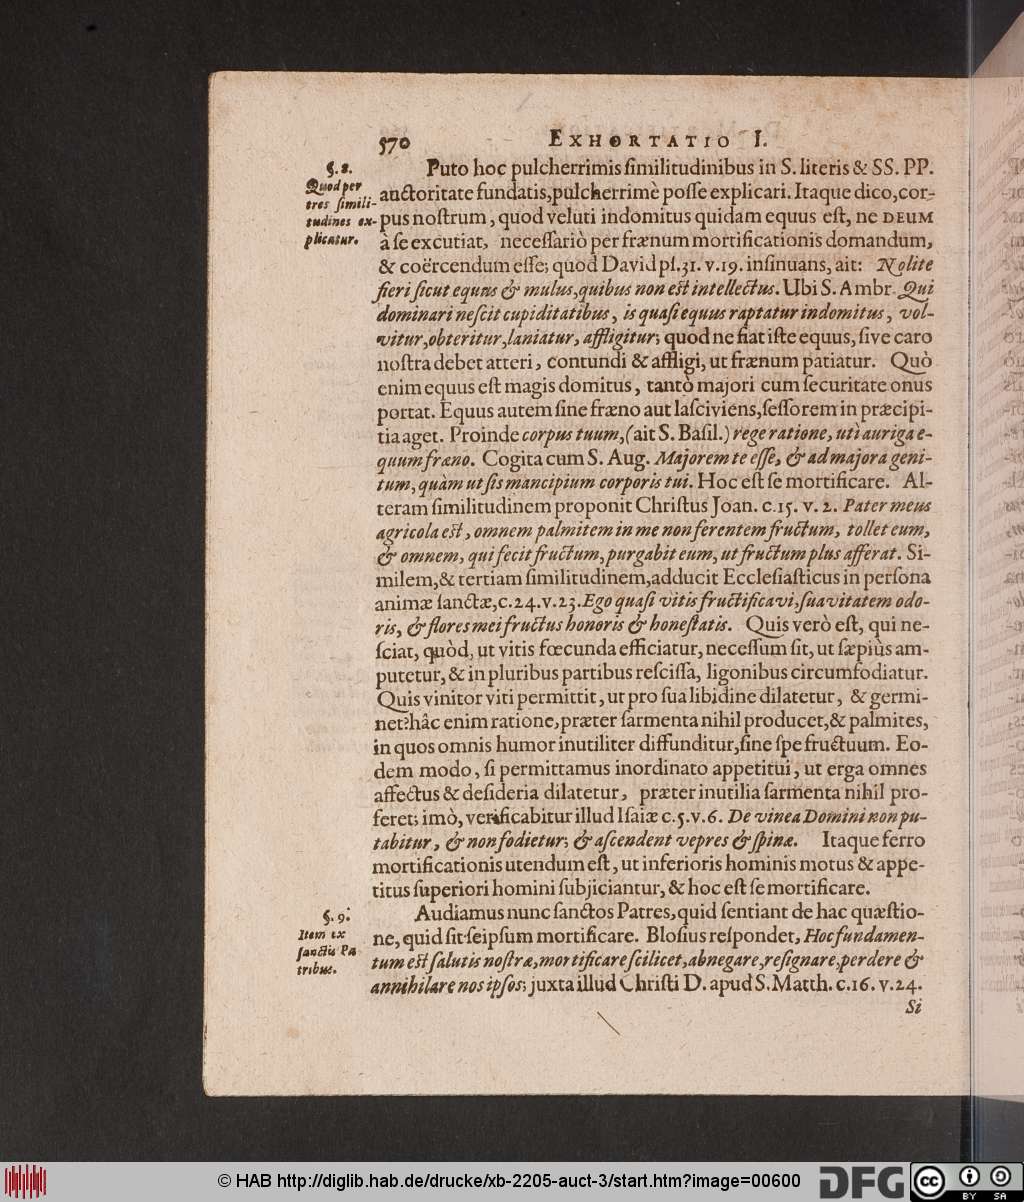 570 EXHORTATIO I.
§. 8.
Quod per
tres ſimili-
tudines ex-
plicatur.
Puto hoc pulcherrimis ſimilitudinibus in S. literis & SS. PP.
auctoritate fundatis, pulcherrimè poſſe explicari. Itaque dico, cor-
pus noſtrum, quod veluti indomitus quidam equus eſt, ne DEUM
à ſe excutiat, neceſſariò per frænum mortificationis domandum,
& coërcendum eſſe; quod David pſ. 31. v. 19. inſinuans, ait: Nolite
fieri ſicut equus & mulus, quibus non eſt intellectus. Ubi S. Ambr. Qui
dominari neſcit cupiditatibus, is quaſi equus raptatur indomitus, vol-
vitur, obteritur, laniatur, affligitur; quod ne fiat iſte equus, ſive caro
noſtra debet atteri, contundi & affligi, ut frænum patiatur. Quò
enim equus eſt magis domitus, tantò majori cum ſecuritate onus
portat. Equus autem ſine fræno aut laſciviens, ſeſſorem in præcipi-
tia aget. Proinde corpus tuum, (ait S. Baſil.) rege ratione, uti auriga e-
quum fræno. Cogita cum S. Aug. Majorem te eſſe, & ad majora geni-
tum, quàm ut ſis mancipium corporis tui. Hoc eſt ſe mortificare. Al-
teram ſimilitudinem proponit Chriſtus Joan. c. 15. v. 2. Pater meus
agricola eſt, omnem palmitem in me non ferentem fructum, tollet eum,
& omnem, qui fecit fructum, purgabit eum, ut fructum plus afferat. Si-
milem, & tertiam ſimilitudinem, adducit Eccleſiaſticus in perſona
animæ ſanctæ, c. 24. v. 23. Ego quaſi vitis fructificavi, ſuavitatem odo-
ris, & flores mei fructus honoris & honeſtatis. Quis verò eſt, qui ne-
ſciat, quòd, ut vitis fœcunda efficiatur, neceſſum ſit, ut ſæpiùs am-
putetur, & in pluribus partibus reſciſſa, ligonibus circumfodiatur.
Quis vinitor viti permittit, ut pro ſua libidine dilatetur, & germi-
net? hâc enim ratione, præter ſarmenta nihil producet, & palmites,
in quos omnis humor inutiliter diffunditur, ſine ſpe fructuum. Eo-
dem modo, ſi permittamus inordinato appetitui, ut erga omnes
affectus & deſideria dilatetur, præter inutilia ſarmenta nihil pro-
feret; imò, verificabitur illud Iſaiæ c. 5. v. 6. De vinea Domini non pu-
tabitur, & non fodietur; & aſcendent vepres & ſpinæ. Itaque ferro
mortificationis utendum eſt, ut inferioris hominis motus & appe-
titus ſuperiori homini ſubjiciantur, & hoc eſt ſe mortificare.
§. 9.
Item ex
ſanctis Pa-
tribus.
Audiamus nunc ſanctos Patres, quid ſentiant de hac quæſtio-
ne, quid ſit ſeipſum mortificare. Bloſius reſpondet, Hoc fundamen-
tum eſt ſalutis noſtræ, mortificare ſcilicet, abnegare, reſignare, perdere &
annihilare nos ipſos; juxta illud Chriſti D. apud S. Matth. c. 16. v. 24.
Si
© HAB http://diglib.hab.de/drucke/xb-2205-auct-3/start.htm?image=00600
DFG
cc
BY SA